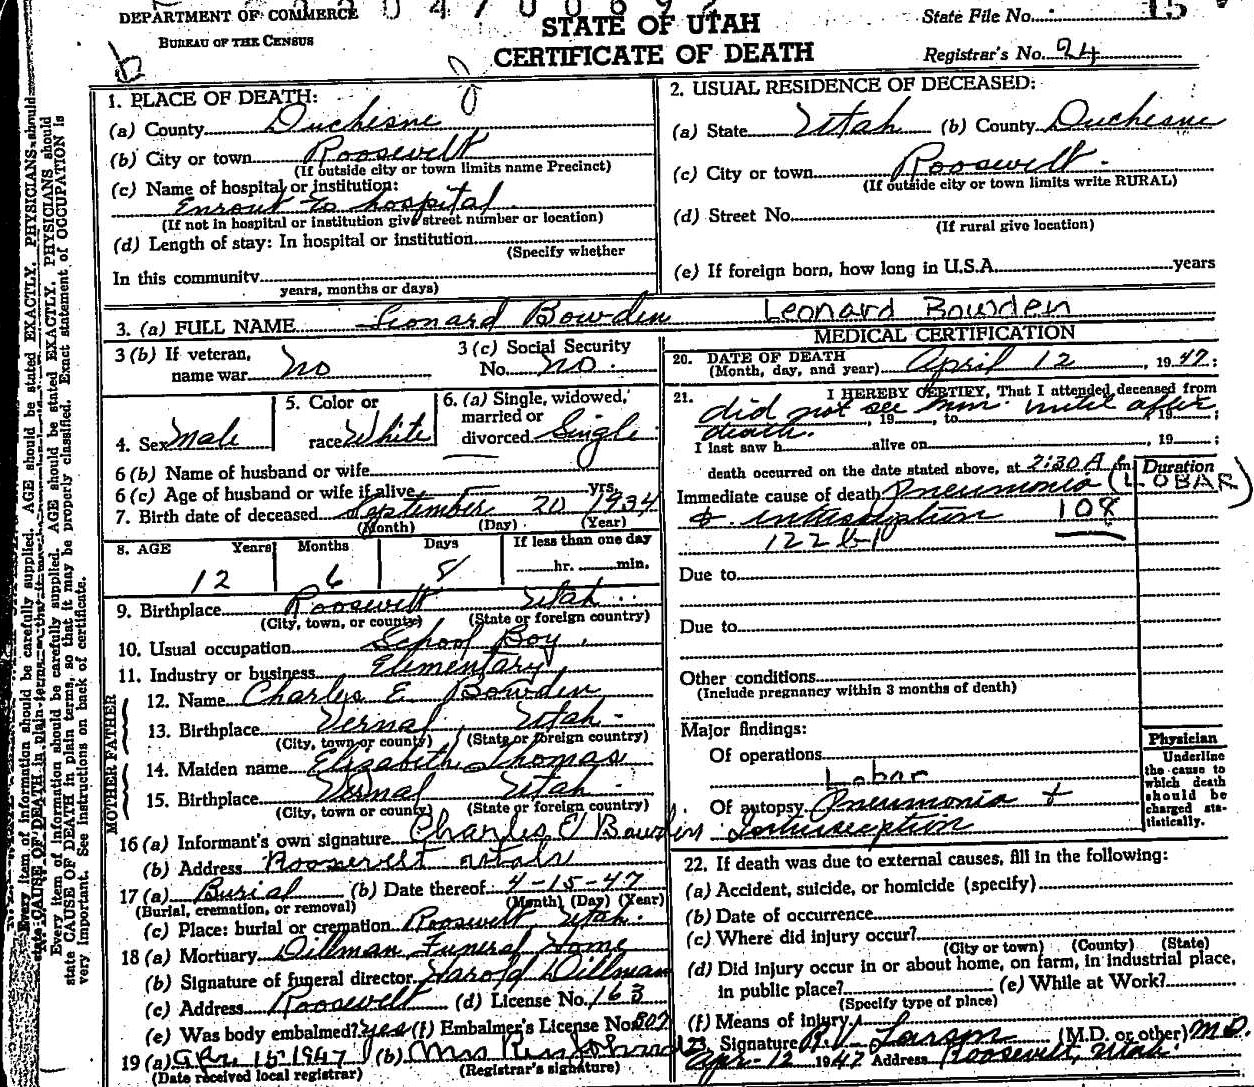 DEPARTMENT OF COMMERCE
BUREAU OF THE CENSUS
STATE OF UTAH
CERTIFICATE OF DEATH
State File No. 15
Registrar's No. 24
1. PLACE OF DEATH:
(a) County Duchesne
(b) City or town Roosevelt
(If outside city or town limits name Precinct)
(c) Name of hospital or institution:
Enrout to hospital
(If not in hospital or institution give street number or location)
(d) Length of stay: In hospital or institution
(Specify whether
In this community
years, months or days)
2. USUAL RESIDENCE OF DECEASED:
(a) State Utah (b) County Duchesne
(c) City or town Roosevelt.
(If outside city or town limits write RURAL)
(d) Street No.
(If rural give location)
(e) If foreign born, how long in U.S.A. years
3. (a) FULL NAME Leonard Bowden Leonard Bowden
3 (b) If veteran, name war No
3 (c) Social Security No. No.
4. Sex Male
5. Color or race White
6. (a) Single, widowed, married or divorced Single
6 (b) Name of husband or wife
6 (c) Age of husband or wife if alive yrs.
7. Birth date of deceased September 20 1934
(Month) (Day) (Year)
8. AGE Years Months Days If less than one day
12 6 8 hr. min.
9. Birthplace Roosevelt Utah
(City, town, or county) (State or foreign country)
10. Usual occupation School Boy
11. Industry or business Elementary
FATHER
12. Name Charles E Bowden
13. Birthplace Vernal, Utah
(City, town or county) (State or foreign country)
MOTHER
14. Maiden name Elizabeth Thomas
15. Birthplace Vernal Utah
(City, town or county) (State or foreign country)
16 (a) Informant's own signature Charles E Bowden
(b) Address Roosevelt utah
17 (a) Burial (b) Date thereof 4-15-47
(Burial, cremation, or removal) (Month) (Day) (Year)
(c) Place: burial or cremation Roosevelt Utah.
18 (a) Mortuary Dillman Funeral Home
(b) Signature of funeral director Harold Dillman
(c) Address Roosevelt (d) License No. 163
(e) Was body embalmed? yes (f) Embalmer's License No. 307
19 (a) Apr. 15-1947 (b) Mrs
(Date received local registrar) (Registrar's signature)
MEDICAL CERTIFICATION
20. DATE OF DEATH
(Month, day, and year) April 12, 1947;
21. I HEREBY CERTIFY, That I attended deceased from
did not see him until after
, 19 , to , 19 ;
death.
I last saw h alive on , 19 ;
death occurred on the date stated above, at 2:30 A m.
Duration
Immediate cause of death Pneumonia (LOBAR)
& intussception 108
122 b-1
Due to
Due to
Other conditions
(Include pregnancy within 3 months of death)
Major findings:
Of operations
Lobar
Of autopsy Pneumonia +
Intussception
Physician
Underline
the cause to
which death
should be
charged sta-
tistically.
22. If death was due to external causes, fill in the following:
(a) Accident, suicide, or homicide (specify)
(b) Date of occurrence
(c) Where did injury occur?
(City or town) (County) (State)
(d) Did injury occur in or about home, on farm, in industrial place,
in public place? (e) While at Work?
(Specify type of place)
(f) Means of injury
23. Signature R.V. Larson (M.D. or other) M.D.
Apr-12 1947 Address Roosevelt, Utah
Every item of information should be carefully supplied. AGE should be stated EXACTLY. PHYSICIANS should
state CAUSE OF DEATH in plain terms, so that it may be properly classified. Exact statement of OCCUPATION is
very important. See instructions on back of certificate.